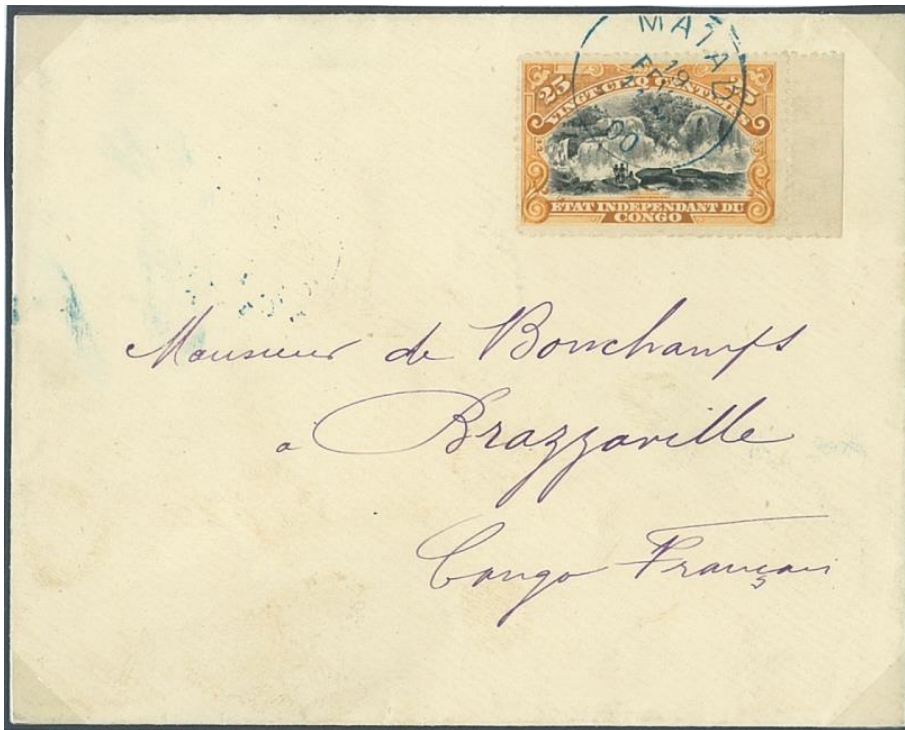 MATADI
19
00
25
VINGT CINQ CENTIMES
ETAT INDEPENDANT DU
CONGO
Monsieur de Bonchamps
à Brazzaville
Congo Français